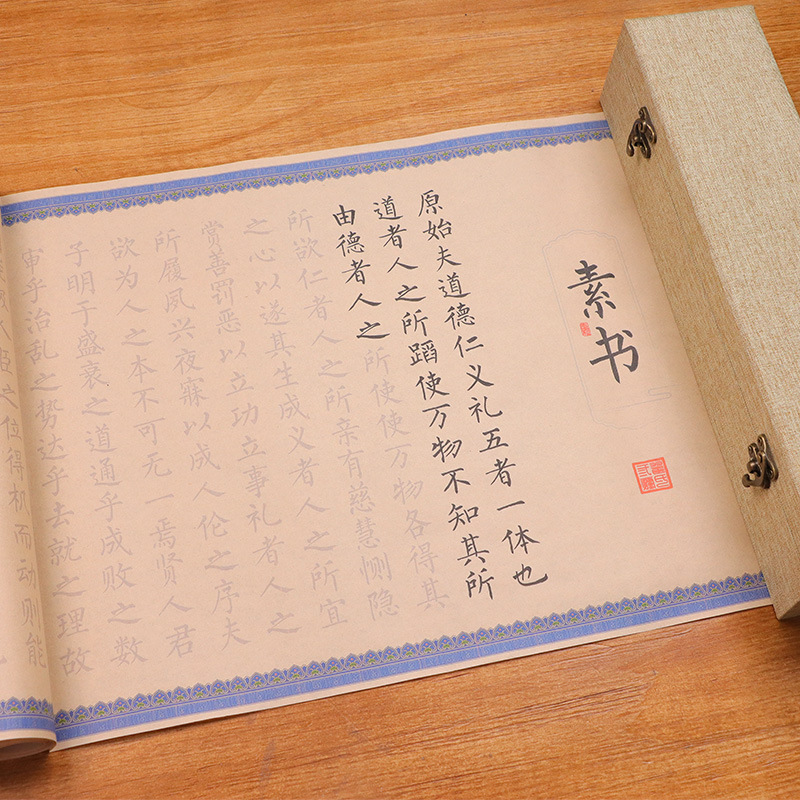 素书
原始夫道德仁义礼五者一体也
道者人之所蹈使万物不知其所
由德者人之所使使万物各得其
所欲仁者人之所亲有慈慧恻隐
之心以遂其生成义者人之所宜
赏善罚恶以立功立事礼者人之
所履夙兴夜寐以成人伦之序夫
欲为人之本不可无一焉贤人君
子明于盛衰之道通乎成败之数
审乎治乱之势达乎去就之理故
人臣之位得机而动则能